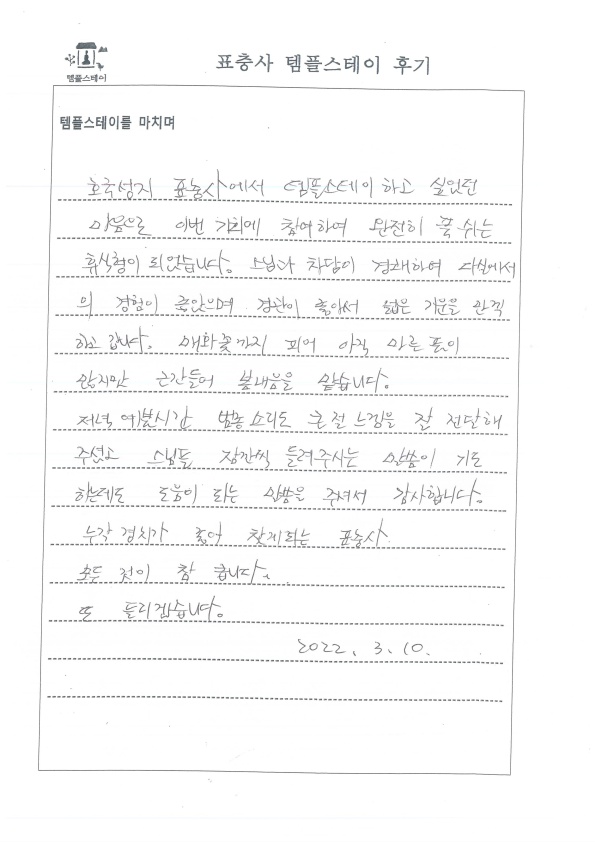 템플스테이
표충사 템플스테이 후기
템플스테이를 마치며
호국성지 표충사에서 템플스테이 하고 싶었던
마음으로 이번 기회에 참여하여 완전히 푹 쉬는
휴식형이 되었습니다. 스님과 차담이 경쾌하여 다실에서
의 경험이 좋았으며 경관이 좋아서 넓은 기운을 만끽
하고 갑니다. 매화꽃까지 피어 아직 마른 풀이
많지만 근간들어 봄내음을 맡습니다.
저녁 예불시간 범종 소리도 큰 절 느낌을 잘 전달해
주셨고 스님들 잠깐씩 들려주시는 말씀이 기도
하는데도 도움이 되는 말씀을 주셔서 감사합니다.
누각 경치가 좋아 찾게되는 표충사
모든 것이 참 큽니다.
또 들리겠습니다.
2022. 3. 10.